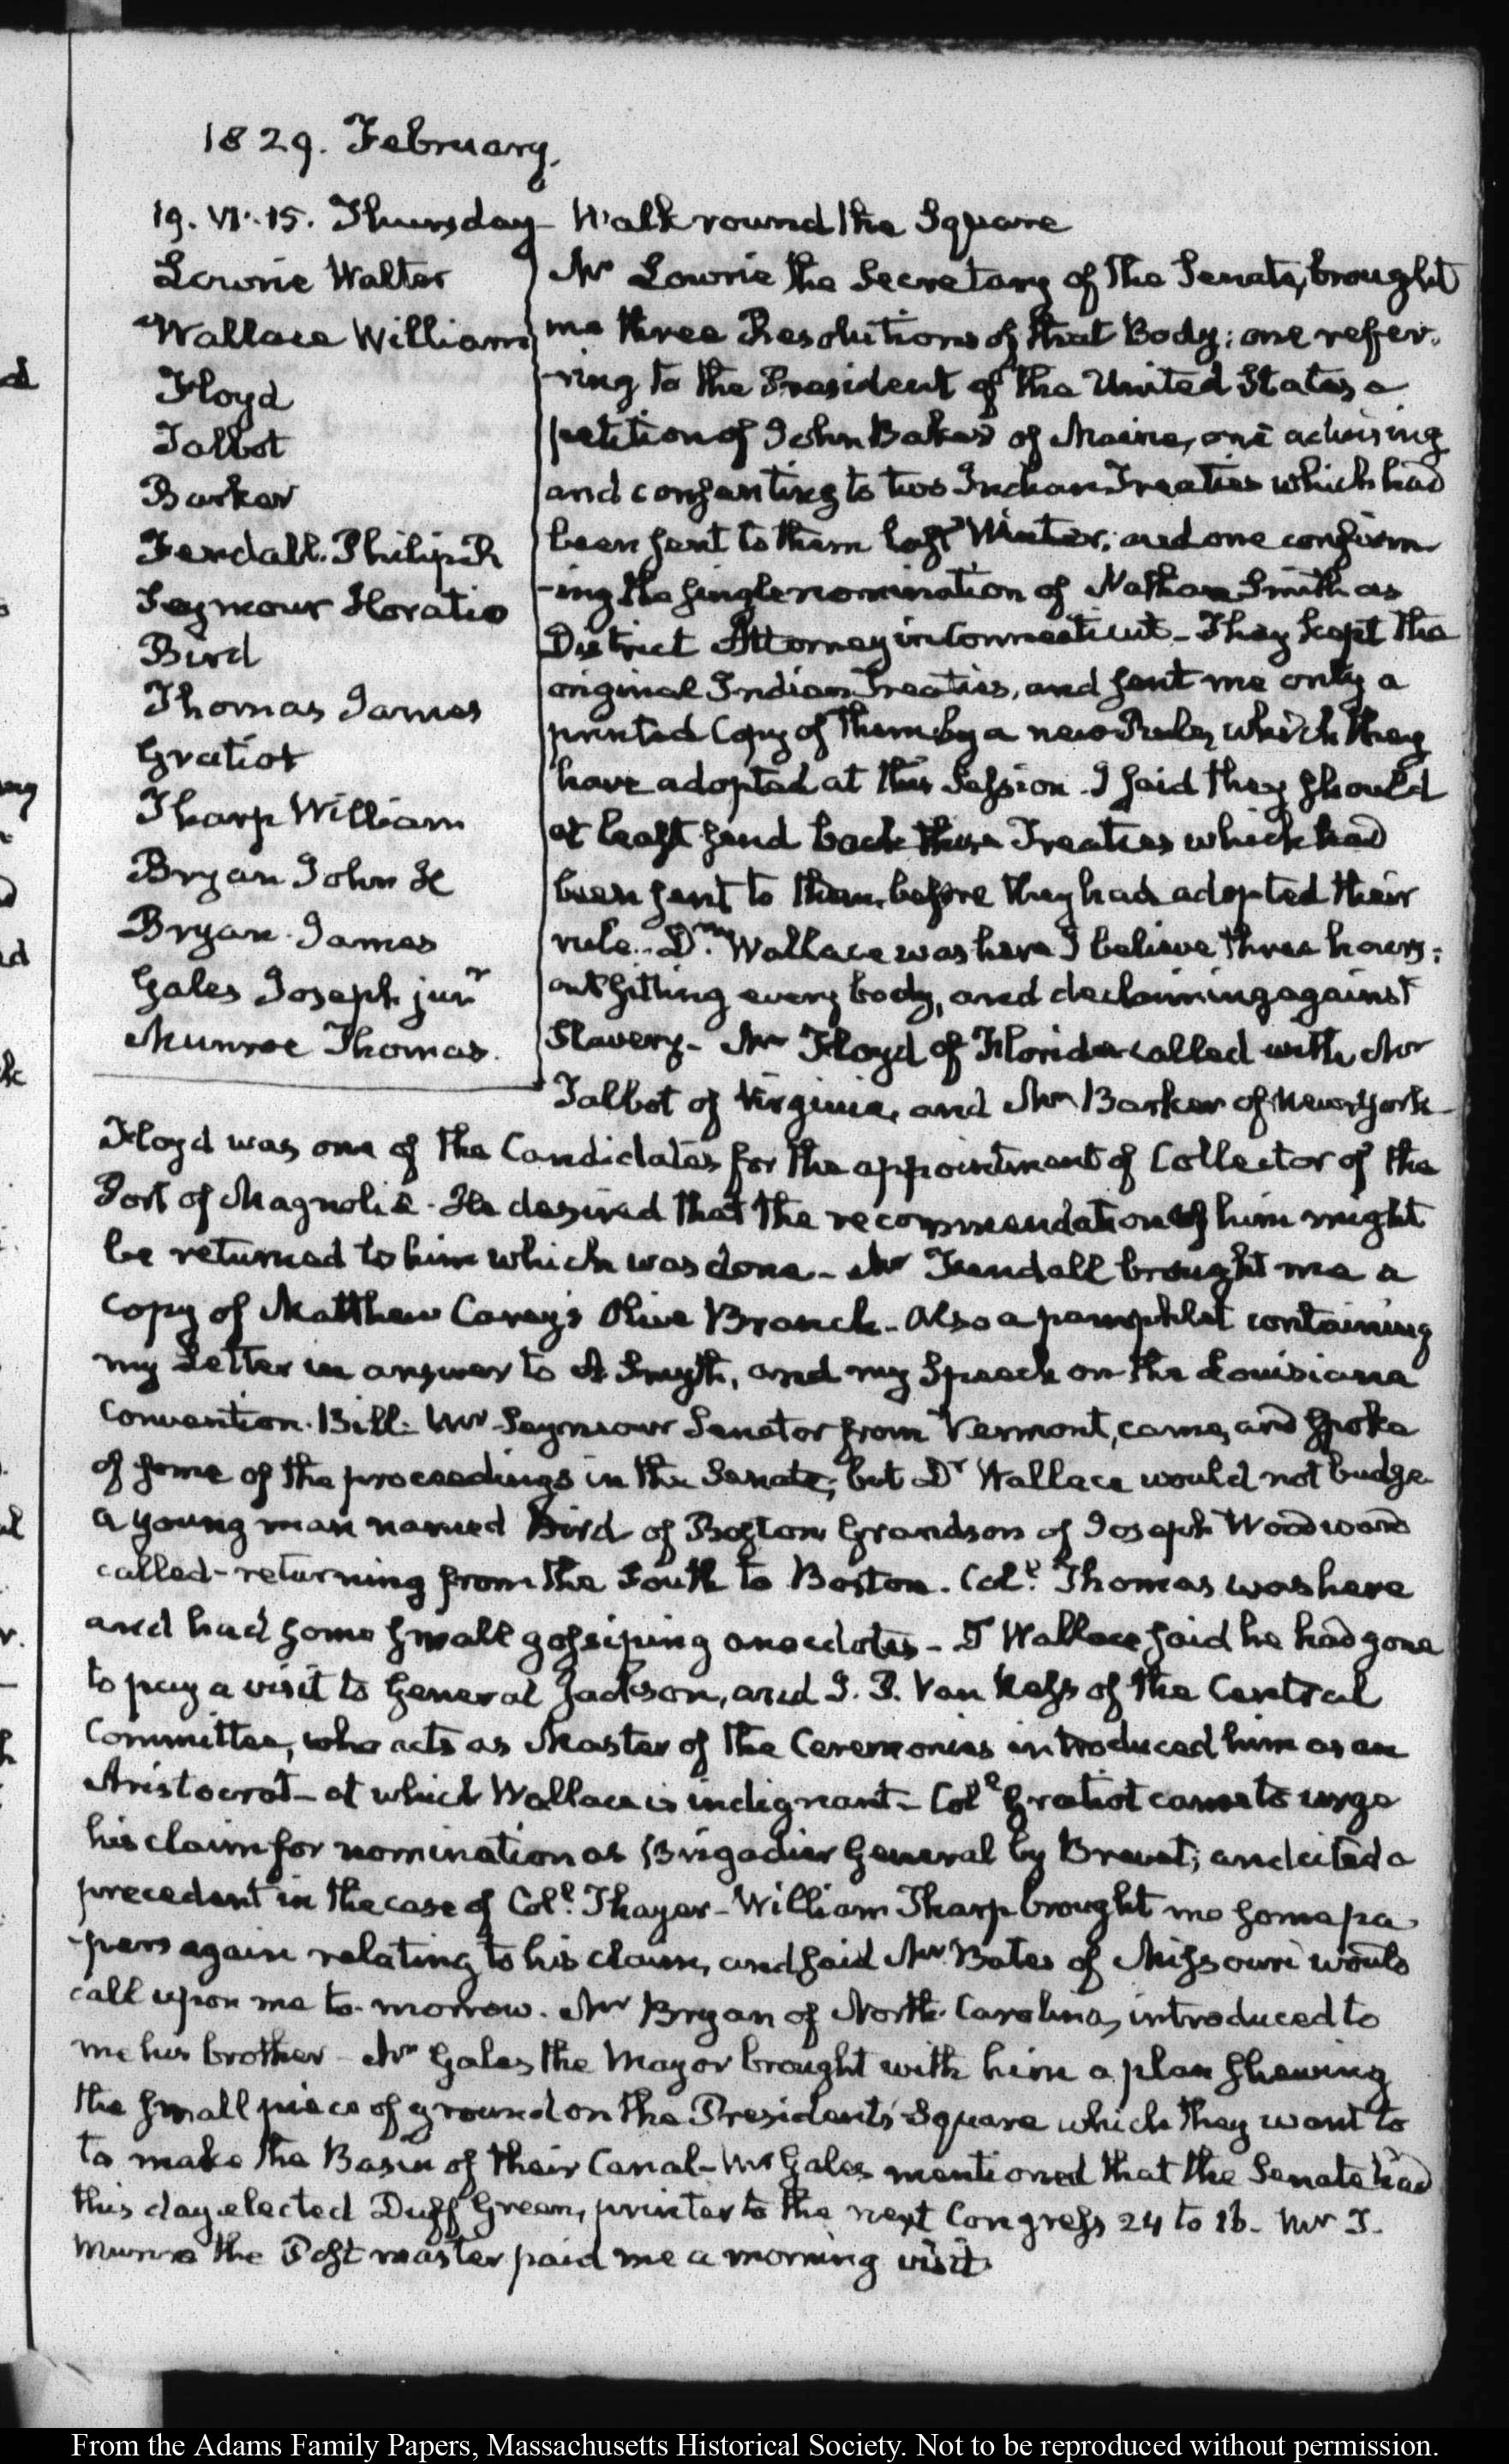 1829. February.
19. VI. 15. Thursday - Walk round the Square
Lowrie Walter
Wallace William
Floyd
Talbot
Barker
Fendall. Philip R
Seymour Horatio
Bird
Thomas James
Gratiot
Tharp William
Bryan John H
Bryan. James
Gales Joseph junr
Munroe Thomas.
Mr Lowrie the Secretary of the Senate, brought
me three Resolutions of that Body; one refer-
-ring to the President of the United States a
petition of John Baker of Maine, one advising
and consenting to two Indian Treaties which had
been sent to them last Winter; and one confirm
-ing the single nomination of Nathan Smith as
District Attorney in Connecticut - They kept the
original Indian Treaties, and sent me only a
printed Copy of them by a new Rule, which they
have adopted at this Session. I said they should
at least send back these Treaties which had
been sent to them, before they had adopted their
rule. Dr. Wm Wallace was here I believe three hours;
outsitting every body, and declaiming against
Slavery - Mr Floyd of Florida called with Mr
Talbot of Virginia, and Mr Barker of New York -
Floyd was one of the Candidates for the appointment of Collector of the
Port of Magnolia. He desired that the recommendation of him might
be returned to him which was done - Mr Fendall brought me a
copy of Matthew Carey's Olive Branch. Also a pamphlet containing
my Letter in answer to A Smyth, and my Speech on the Louisiana
Convention. Bill. Mr Seymour Senator from Vermont, came, and spoke
of some of the proceedings in the Senate; but Dr Wallace would not budge
a young man named Bird of Boston Grandson of Joseph Woodward
called - returning from the South to Boston. Coll. Thomas was here
and had some small gossiping anecdotes - Wallace said he had gone
to pay a visit to General Jackson, and J. P. Van Ness of the Central
Committee, who acts as Master of the Ceremonies introduced him as an
Aristocrat - at which Wallace is indignant - Coll Gratiot came to urge
his claim for nomination as Brigadier General by Brevet; and cited a
precedent in the case of Coll. Thayer - William Tharp brought me some pa
-pers again relating to his claim, and said Mr Bates of Missouri would
call upon me to-morrow. Mr Bryan of North-Carolina, introduced to
me his brother - Mr Gales the Mayor brought with him a plan shewing
the small piece of ground on the Presidents Square which they want to
to make the Basin of their Canal - Mr Gales mentioned that the Senate had
this day elected Duff Green, printer to the next Congress 24 to 16. Mr T.
Munroe the Post master paid me a morning visit.
From the Adams Family Papers, Massachusetts Historical Society. Not to be reproduced without permission.